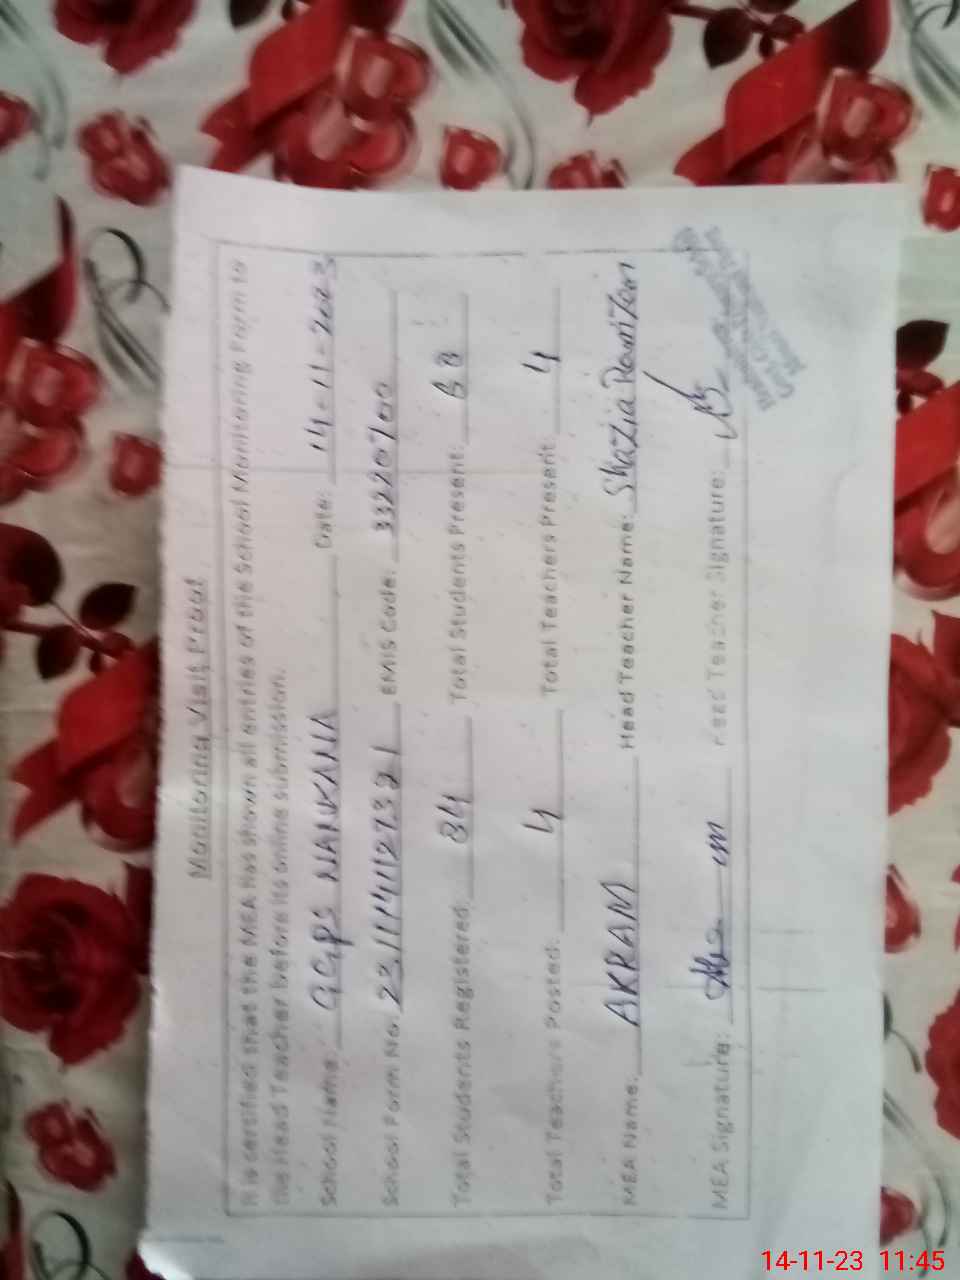 Monitoring Visit Proof
It is certified that the MEA has shown all entries of the School Monitoring Form to
the Head Teacher before its online submission.
School Name: GGPS NANKANA Date: 14-11-2023
School Form No: EMIS Code: 33220700
Total Students Registered: 84 Total Students Present:
Total Teachers Posted: 4 Total Teachers Present: 4
MEA Name: AKRAM Head Teacher Name: Shazia Ramzan
MEA Signature: Head Teacher Signature:
14-11-23 11:45